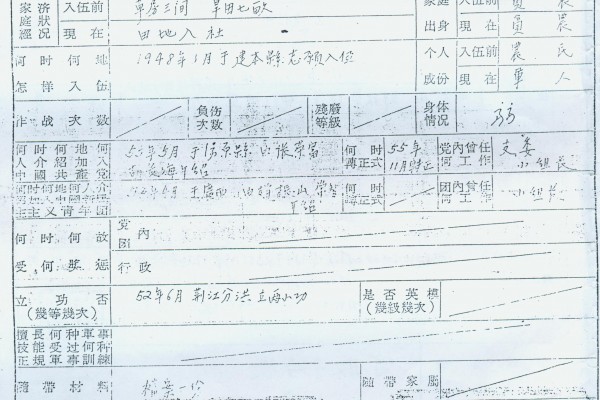 家济 入伍前 草房三间 旱田七畝 家庭 入伍前 員 農
庭狀
經況 现在 田地入社 出身 现在 員 農
何时何地 1948年1月于建本縣志願入伍 个人 入伍前 農民
怎样入伍 成份 现在 軍人
作战次数 負伤次数 殘廢等級 身体情况 弱
何时何地何 53年5月于 縣 山張榮富 何时轉正式 55年11月轉正 党內曾任何工作 支委 小組長
人介紹加入
中國共產党 介紹
何时何地何人介 于廣西 介紹 何时轉正式 团內曾任何工作 小組長
紹加入中國新民
主主义青年团
何时何故 党內
团
受何獎惩 行政
立功否 52年6月荆江分洪立两小功 是否英模
(幾等幾次) (幾級幾次)
擅長何种軍事
技能受过何种
正規軍事訓練
隨带材料 檔案一份 隨带家屬